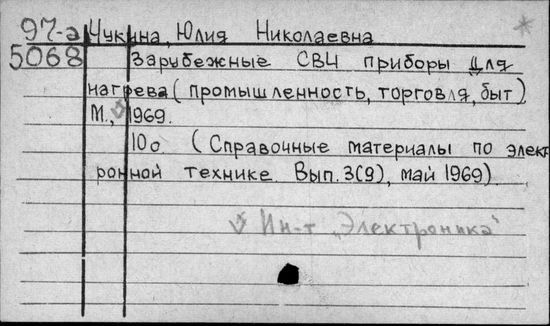 97-э Чукина, Юлия Николаевна
5068 Зарубежные СВЧ приборы для
нагрева (промышленность, торговля, быт)
М., 1969.
10с (Справочные материалы по элект
ронной технике. Вып. 3(9), май 1969).
Ин-т „Электроника"